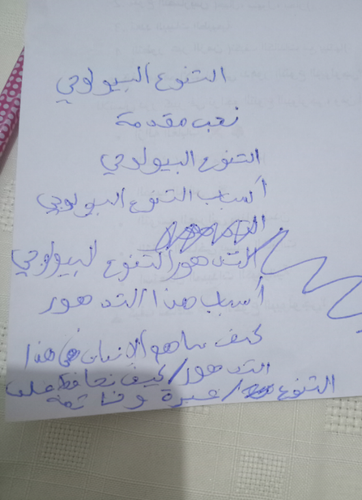 التنوع البيولوجي
نحب مقدمة
التنوع البيولوجي
أسباب التنوع البيولوجي
التدهور التنوع البيولوجي
أسباب هذا التدهور
كيف ساهم الإنسان في هذا
التدهور / كيف نحافظ على
التنوع / عبرة وخاتمة